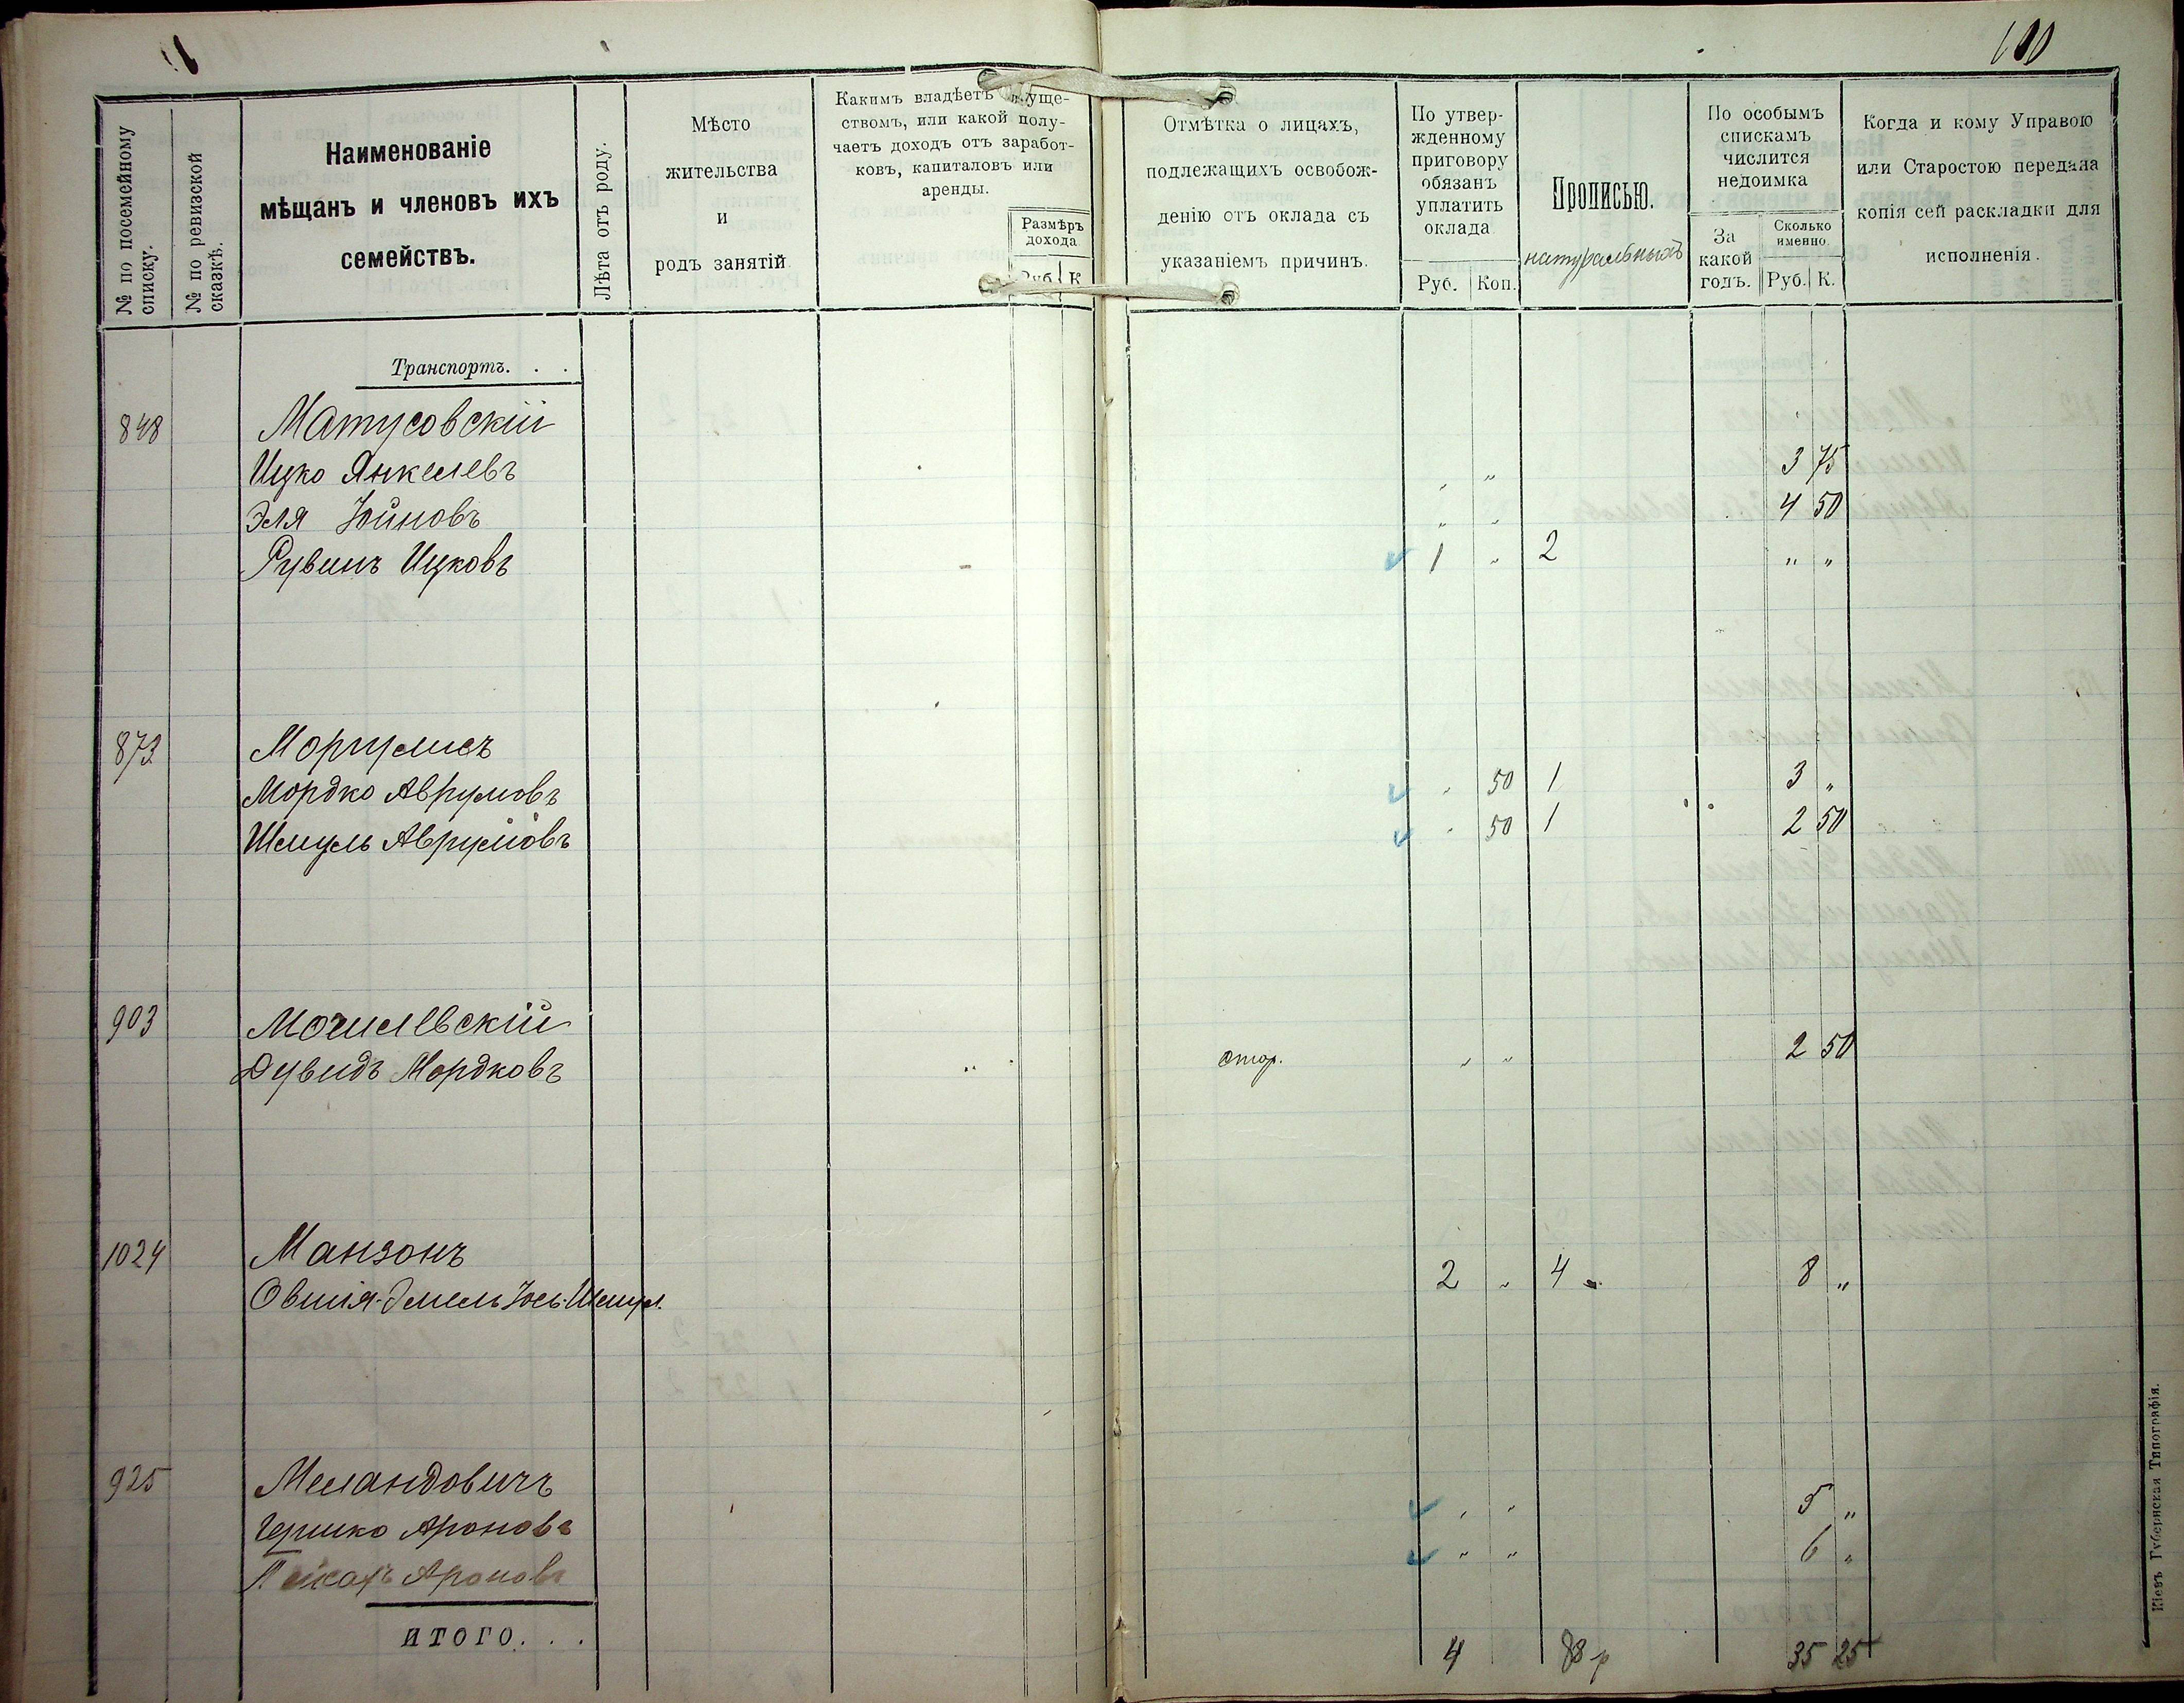 100
№ по посемейному списку.
№ по ревизской сказкѣ.
Наименованіе
мѣщанъ и членовъ ихъ
семействъ.
Лѣта отъ роду.
Мѣсто
жительства
и
родъ занятій
Какимъ владѣетъ имуще-
ствомъ, или какой полу-
чаетъ доходъ отъ заработ-
ковъ, капиталовъ или
аренды.
Размѣръ
дохода
Руб. К
Отмѣтка о лицахъ,
подлежащихъ освобож-
денію отъ оклада съ
указаніемъ причинъ.
По утвер-
жденному
приговору
обязанъ
уплатить
оклада
Руб. Коп.
Прописью.
натуральныхъ
По особымъ
спискамъ
числится
недоимка
За
какой
годъ.
Сколько
именно.
Руб. К.
Когда и кому Управою
или Старостою передана
копія сей раскладки для
исполненія.
Транспортъ. . .
848 Матусовскій
Ицко Янкелевъ „ „ 3 75
Эля Юйновъ „ „ 4 50
Рувинъ Ицковъ 1 „ 2 „ „
873 Моргулисъ
Мордко Аврумовъ „ 50 1 3 „
Шмуль Аврумовъ „ 50 1 2 50
903 Могилевскій
Дувидъ Мордковъ „ „ 2 50
1024 Манзонъ
Овшія-Эмель Юсь-Шмул. 2 „ 4 8 „
925 Меландовичъ
Гершко Ароновъ „ „ 5 „
Пейсахъ Ароновъ „ „ 6 „
ИТОГО. . . 4 8 р 35 25
Кіевъ Губернская Типографія.